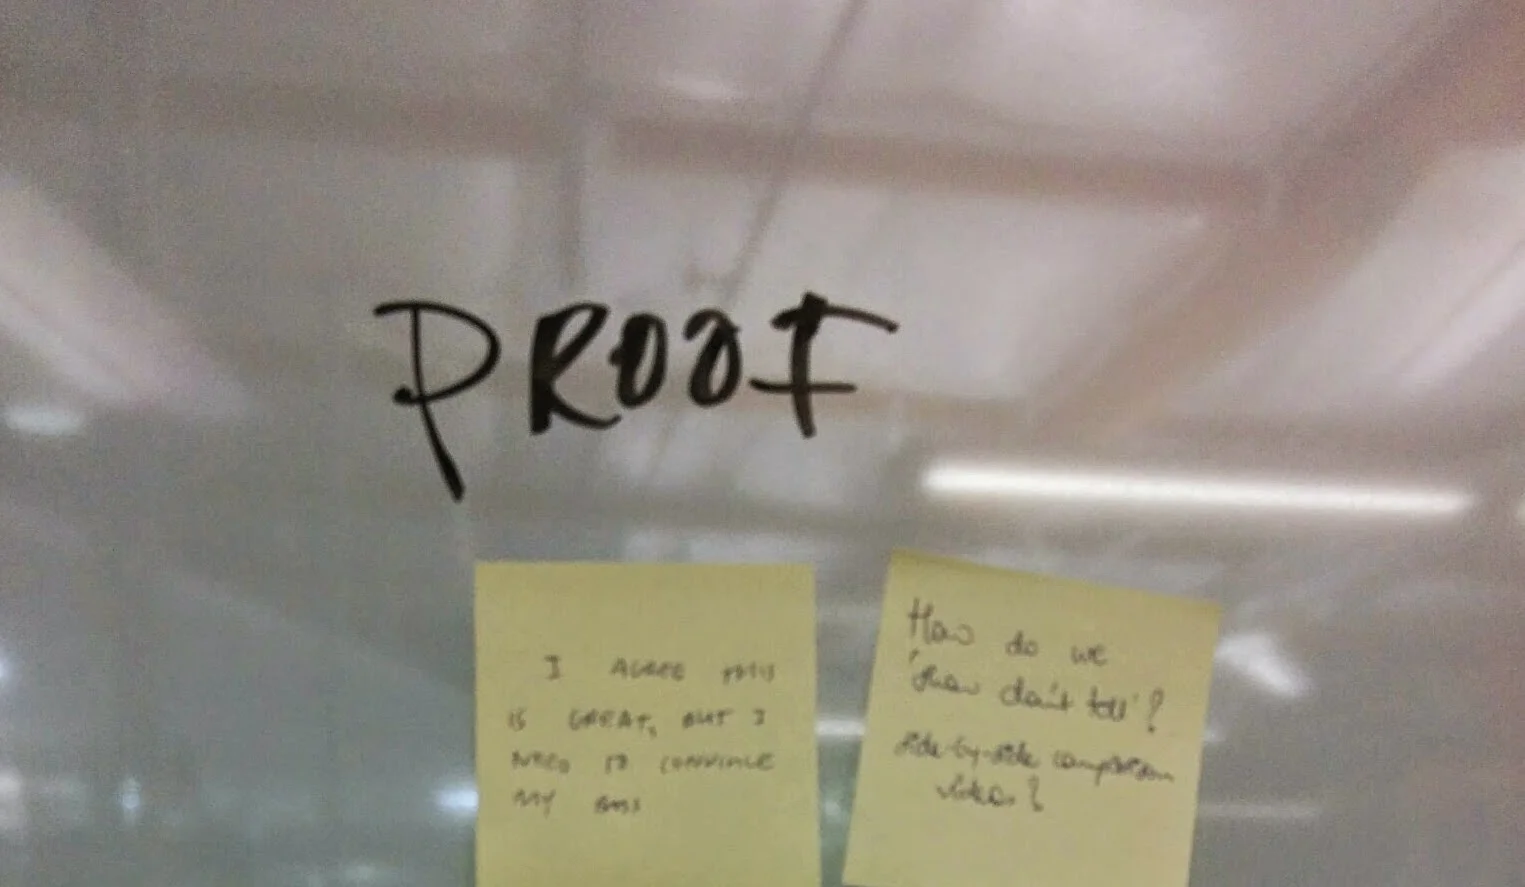 PROOF
I AGREE THIS
IS GREAT, BUT I
NEED TO CONVINCE
MY BOSS
How do we
'show don't tell'?
side-by-side comparison
videos?